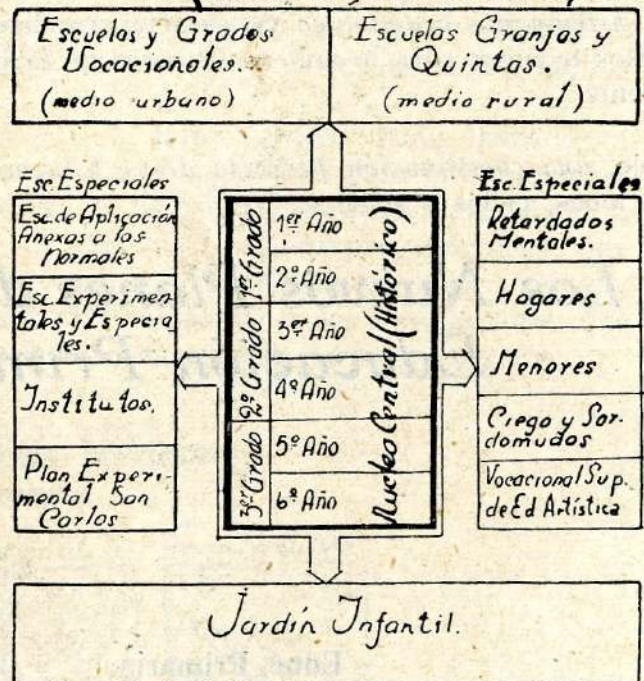 Escuelas y Grados
Vocacionales.
(medio urbano)
Escuelas Granjas y
Quintas.
(medio rural)
Esc. Especiales
Esc. de Aplicación
Anexas a las
Normales
Esc. Experimen-
tales y Especia_
les.
Institutos.
Plan Experi-
mental San
Carlos
1er Grado
2º Grado
3er Grado
1er Año
2º Año
3er Año
4º Año
5º Año
6º Año
Nucleo Central (Histórico)
Esc. Especiales
Retardados
Mentales.
Hogares
Menores
Ciego y Sor-
domudos
Vocacional Sup.
de Ed Artística
Jardín Infantil.